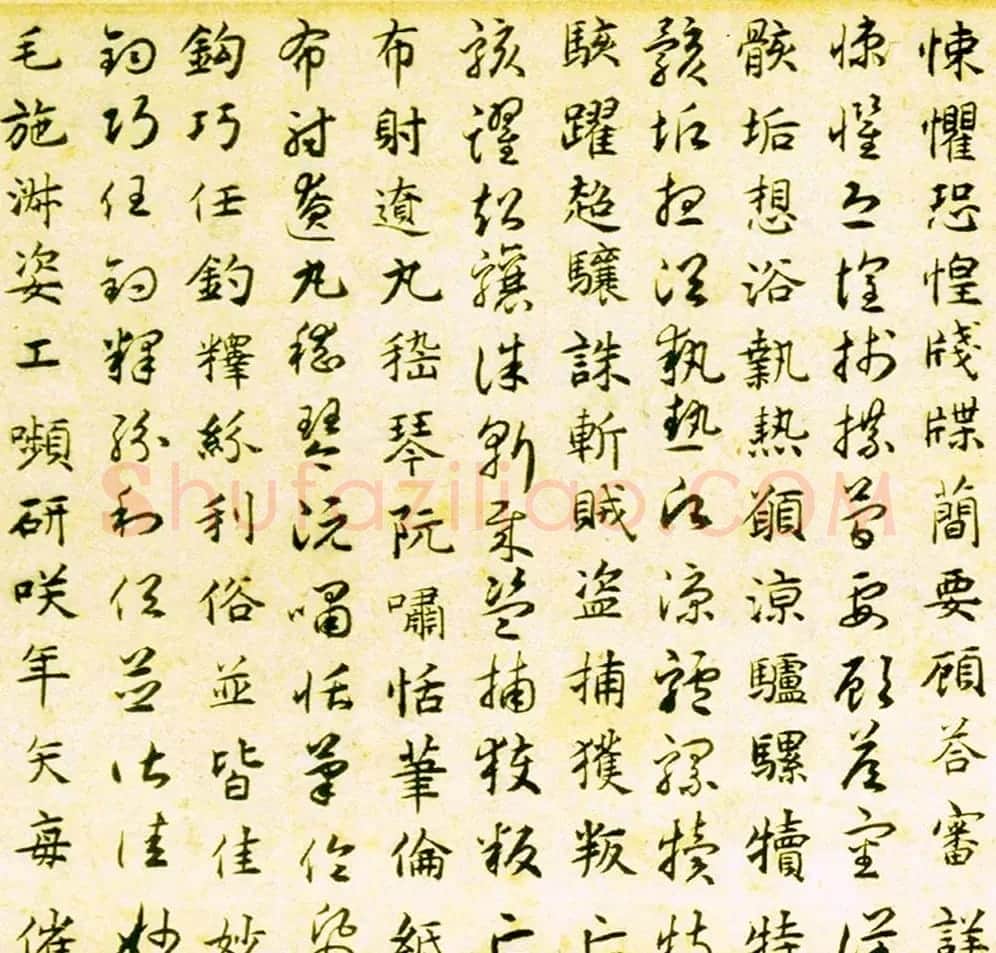 悚懼恐惶牋牒簡要顧荅審詳
悚懼恐惶牋牒簡要顧荅審詳
骸垢想浴執熱願涼驢騾犢特
骸垢想浴執熱願涼驢騾犢特
駭躍超驤誅斬賊盜捕獲叛亡
駭躍超驤誅斬賊盜捕獲叛亡
布射遼丸嵇琴阮嘯恬筆倫紙
布射遼丸嵇琴阮嘯恬筆倫紙
鈎巧任釣釋紛利俗並皆佳妙
鈎巧任釣釋紛利俗並皆佳妙
毛施淑姿工嚬研咲年矢每催
Shufaziliao.COM